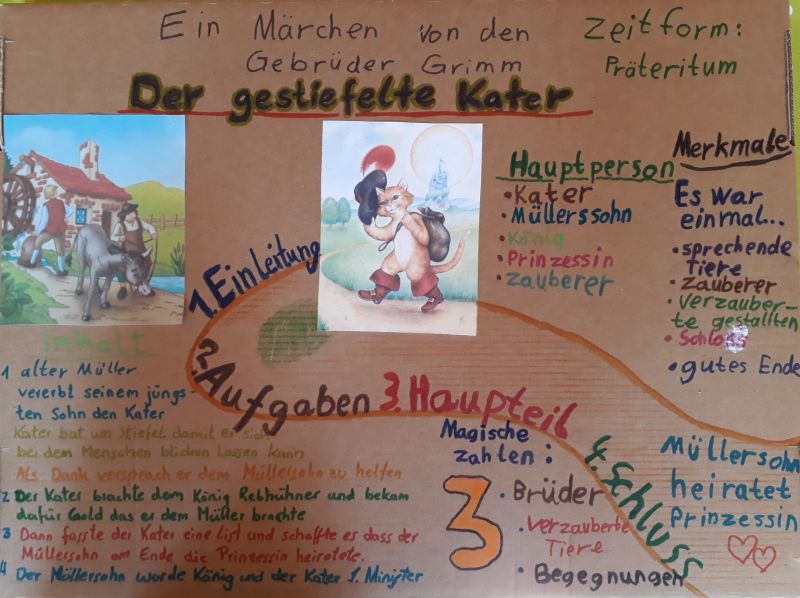 Ein Märchen von den
Gebrüder Grimm
Zeitform:
Präteritum
Der gestiefelte Kater
Hauptperson
• Kater
• Müllerssohn
• König
• Prinzessin
• Zauberer
Merkmale
Es war
einmal...
• sprechende
Tiere
• Zauberer
• verzauber-
te gestallten
• Schloss
• gutes Ende
1. Einleitung
2. Aufgaben
3. Haupteil
4. Schluss
Inhalt
1 alter Müller
vererbt seinem jüngs-
ten Sohn den Kater
Kater bat um Stiefel damit er sich
bei dem Menschen blicken lassen kann
Als Dank versprach er dem Müllelsohn zu helfen
2 Der Kater brachte dem König Rebhühner und bekam
dafür Gold das er dem Müller brachte
3 Dann fasste der Kater eine List und schaffte es dass der
Müllersohn am Ende die Prinzessin heiratete.
4 Der Möllersohn wurde König und der Kater 1. Minister
Magische
zahlen:
3
• Brüder
• verzauberte
Tiere
• Begegnungen
Müllersohn
heiratet
Prinzessin